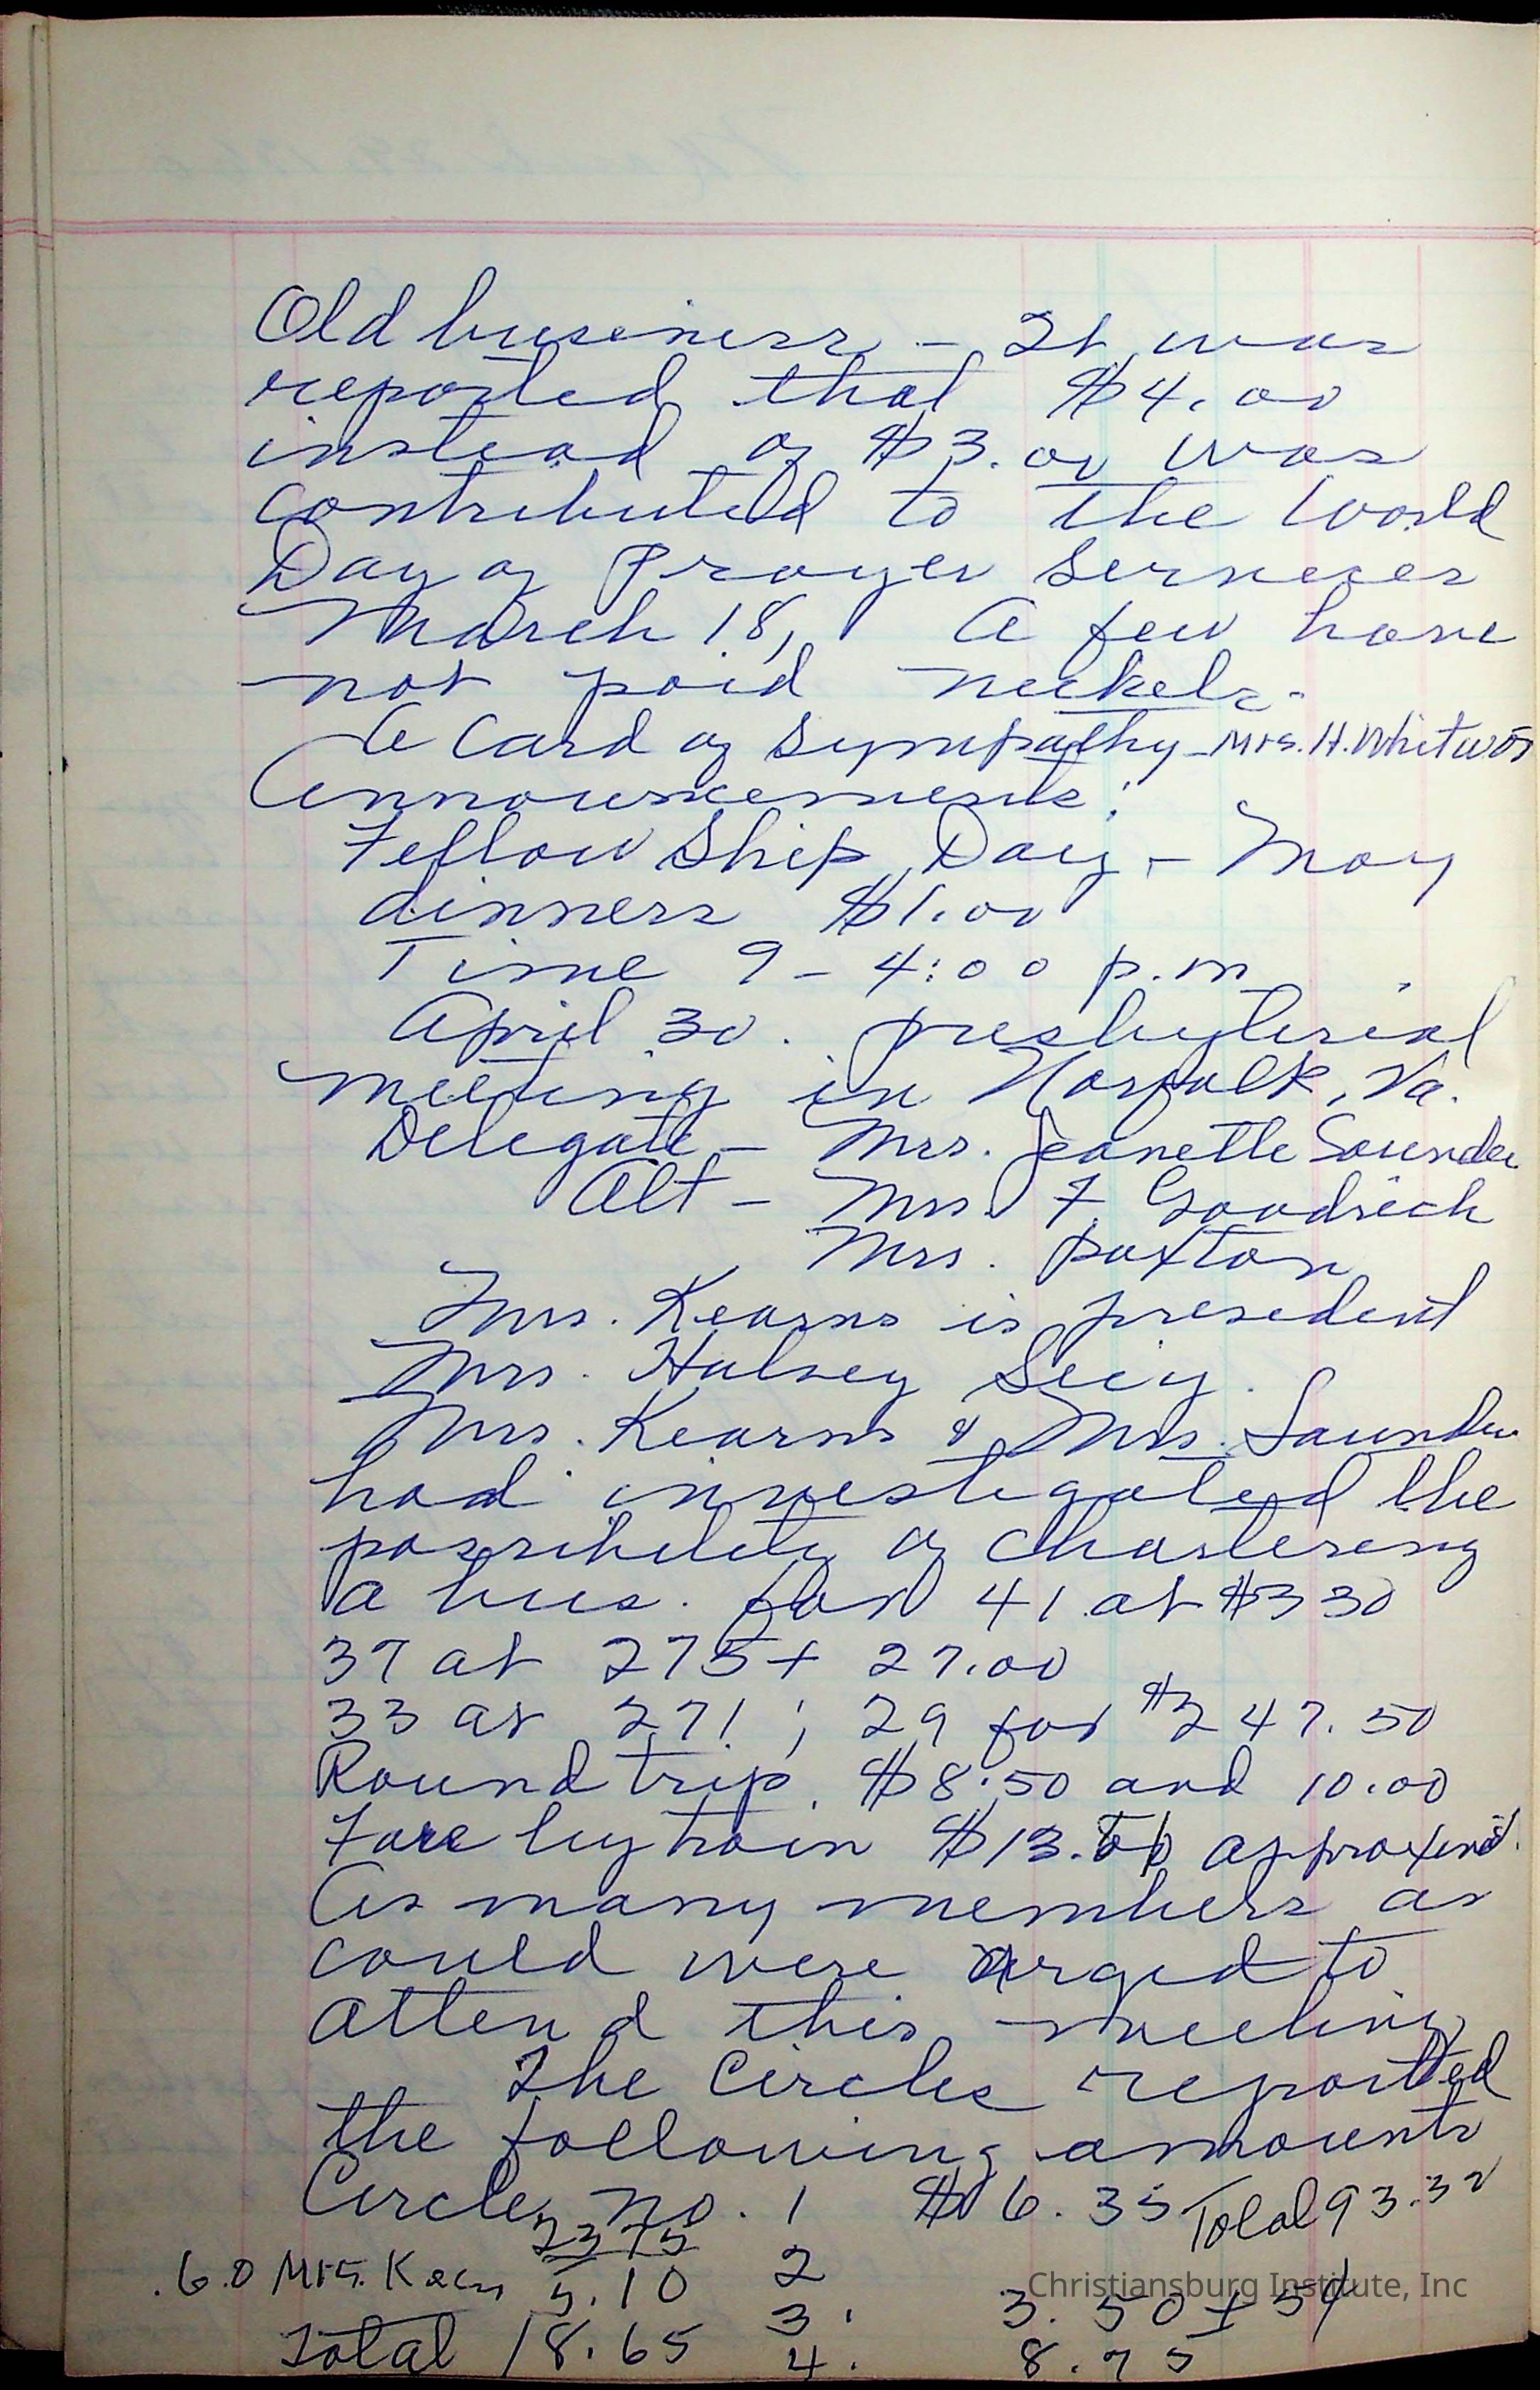 Old business - It was
reported that $4.00
instead of $3.00 was
contributed to the World
Day of Prayer Services
March 18, A few have
not paid nickels.
A Card of sympathy - Mrs. H. Whitwor
Announcements:
Fellow Ship Day - May
dinners $1.00
Time 9 - 4:00 p.m
April 30. presbyterial
meeting in Norfolk, Va.
Delegate - Mrs. Jeanette Saunder
Alt - Mrs. F. Goodrich
Mrs. Paxton
Mrs. Kearns is president
Mrs. Halsey Secy.
Mrs. Kearns & Mrs. Saunders
had investigated the
possibility of chartering
a bus. for 41 at $330
37 at 275 + 27.00
33 at 271 ; 29 for $247.50
Round trip. $8.50 and 10.00
Fare by train $13. approximt.
As many members as
could were urged to
attend this meeting
The Circles reported
the following amounts
Circle no. 1 $6.35 Total 93.32
2375
.60 Mrs. 5.10 2
3. 3.50 + 5¢
Total 18.65 4. 8.75
Christiansburg Institute, Inc